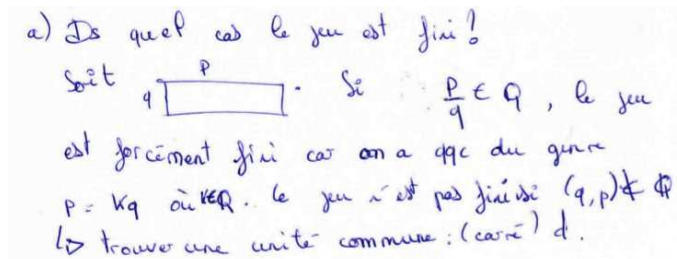 a) Ds quel cas le jeu est fini ?
Soit q p . Si p/q ∈ Q, le jeu
est forcément fini car on a qqc du genre
p = kq où k∈Q. le jeu n'est pas fini si (q,p) ∉ Q
↳ trouver une unité commune : (carré) d.